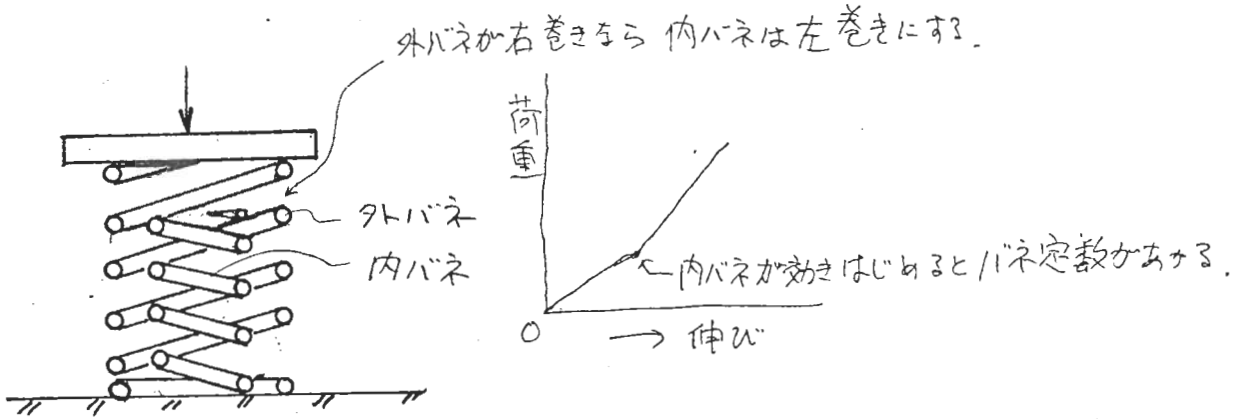 外バネが右巻きなら 内バネは左巻きにする.
荷重
外バネ
内バネ
内バネが効きはじめるとバネ定数があがる.
0
→ 伸び